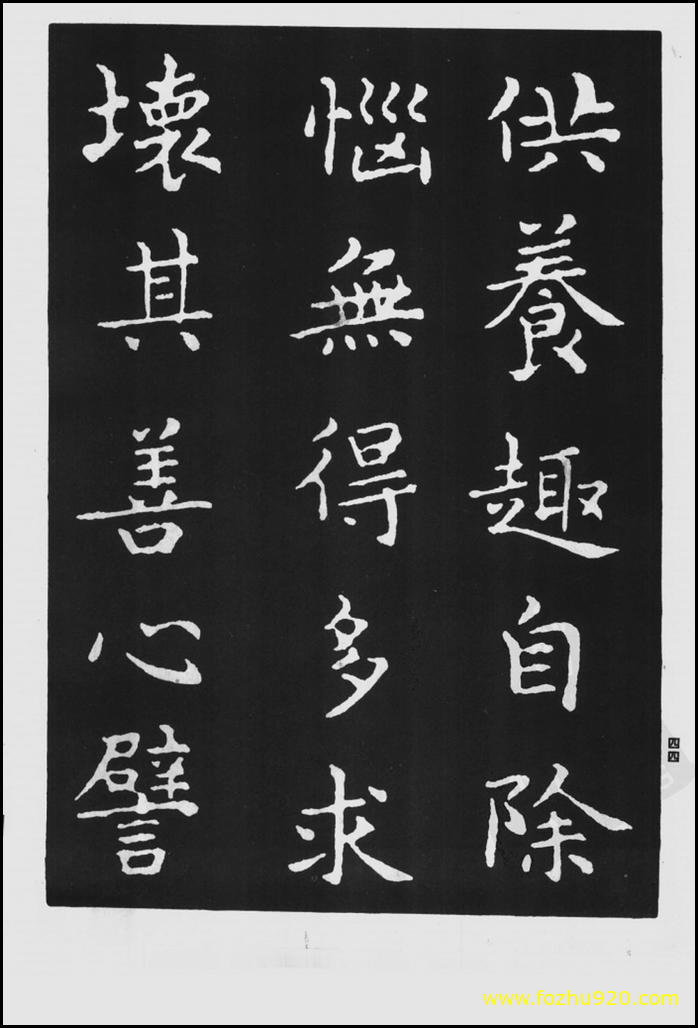 供養趣自除
惱無得多求
壞其善心譬
四四
www.fozhu920.com